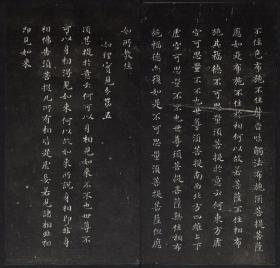 不住色布施不住聲香味觸法布施須菩提菩薩
應如是布施不住於相何以故若菩薩不住相布
施其福德不可思量須菩提於意云何東方虛
空可思量不不也世尊須菩提南西北方四維上下
虛空可思量不不也世尊須菩提菩薩無住相布
施福德亦復如是不可思量須菩提菩薩但應
如所教住
如理實見分第五
須菩提於意云何可以身相見如來不不也世尊不
可以身相得見如來何以故如來所說身相即非身
相佛告須菩提凡所有相皆是虛妄若見諸相非相
即見如來